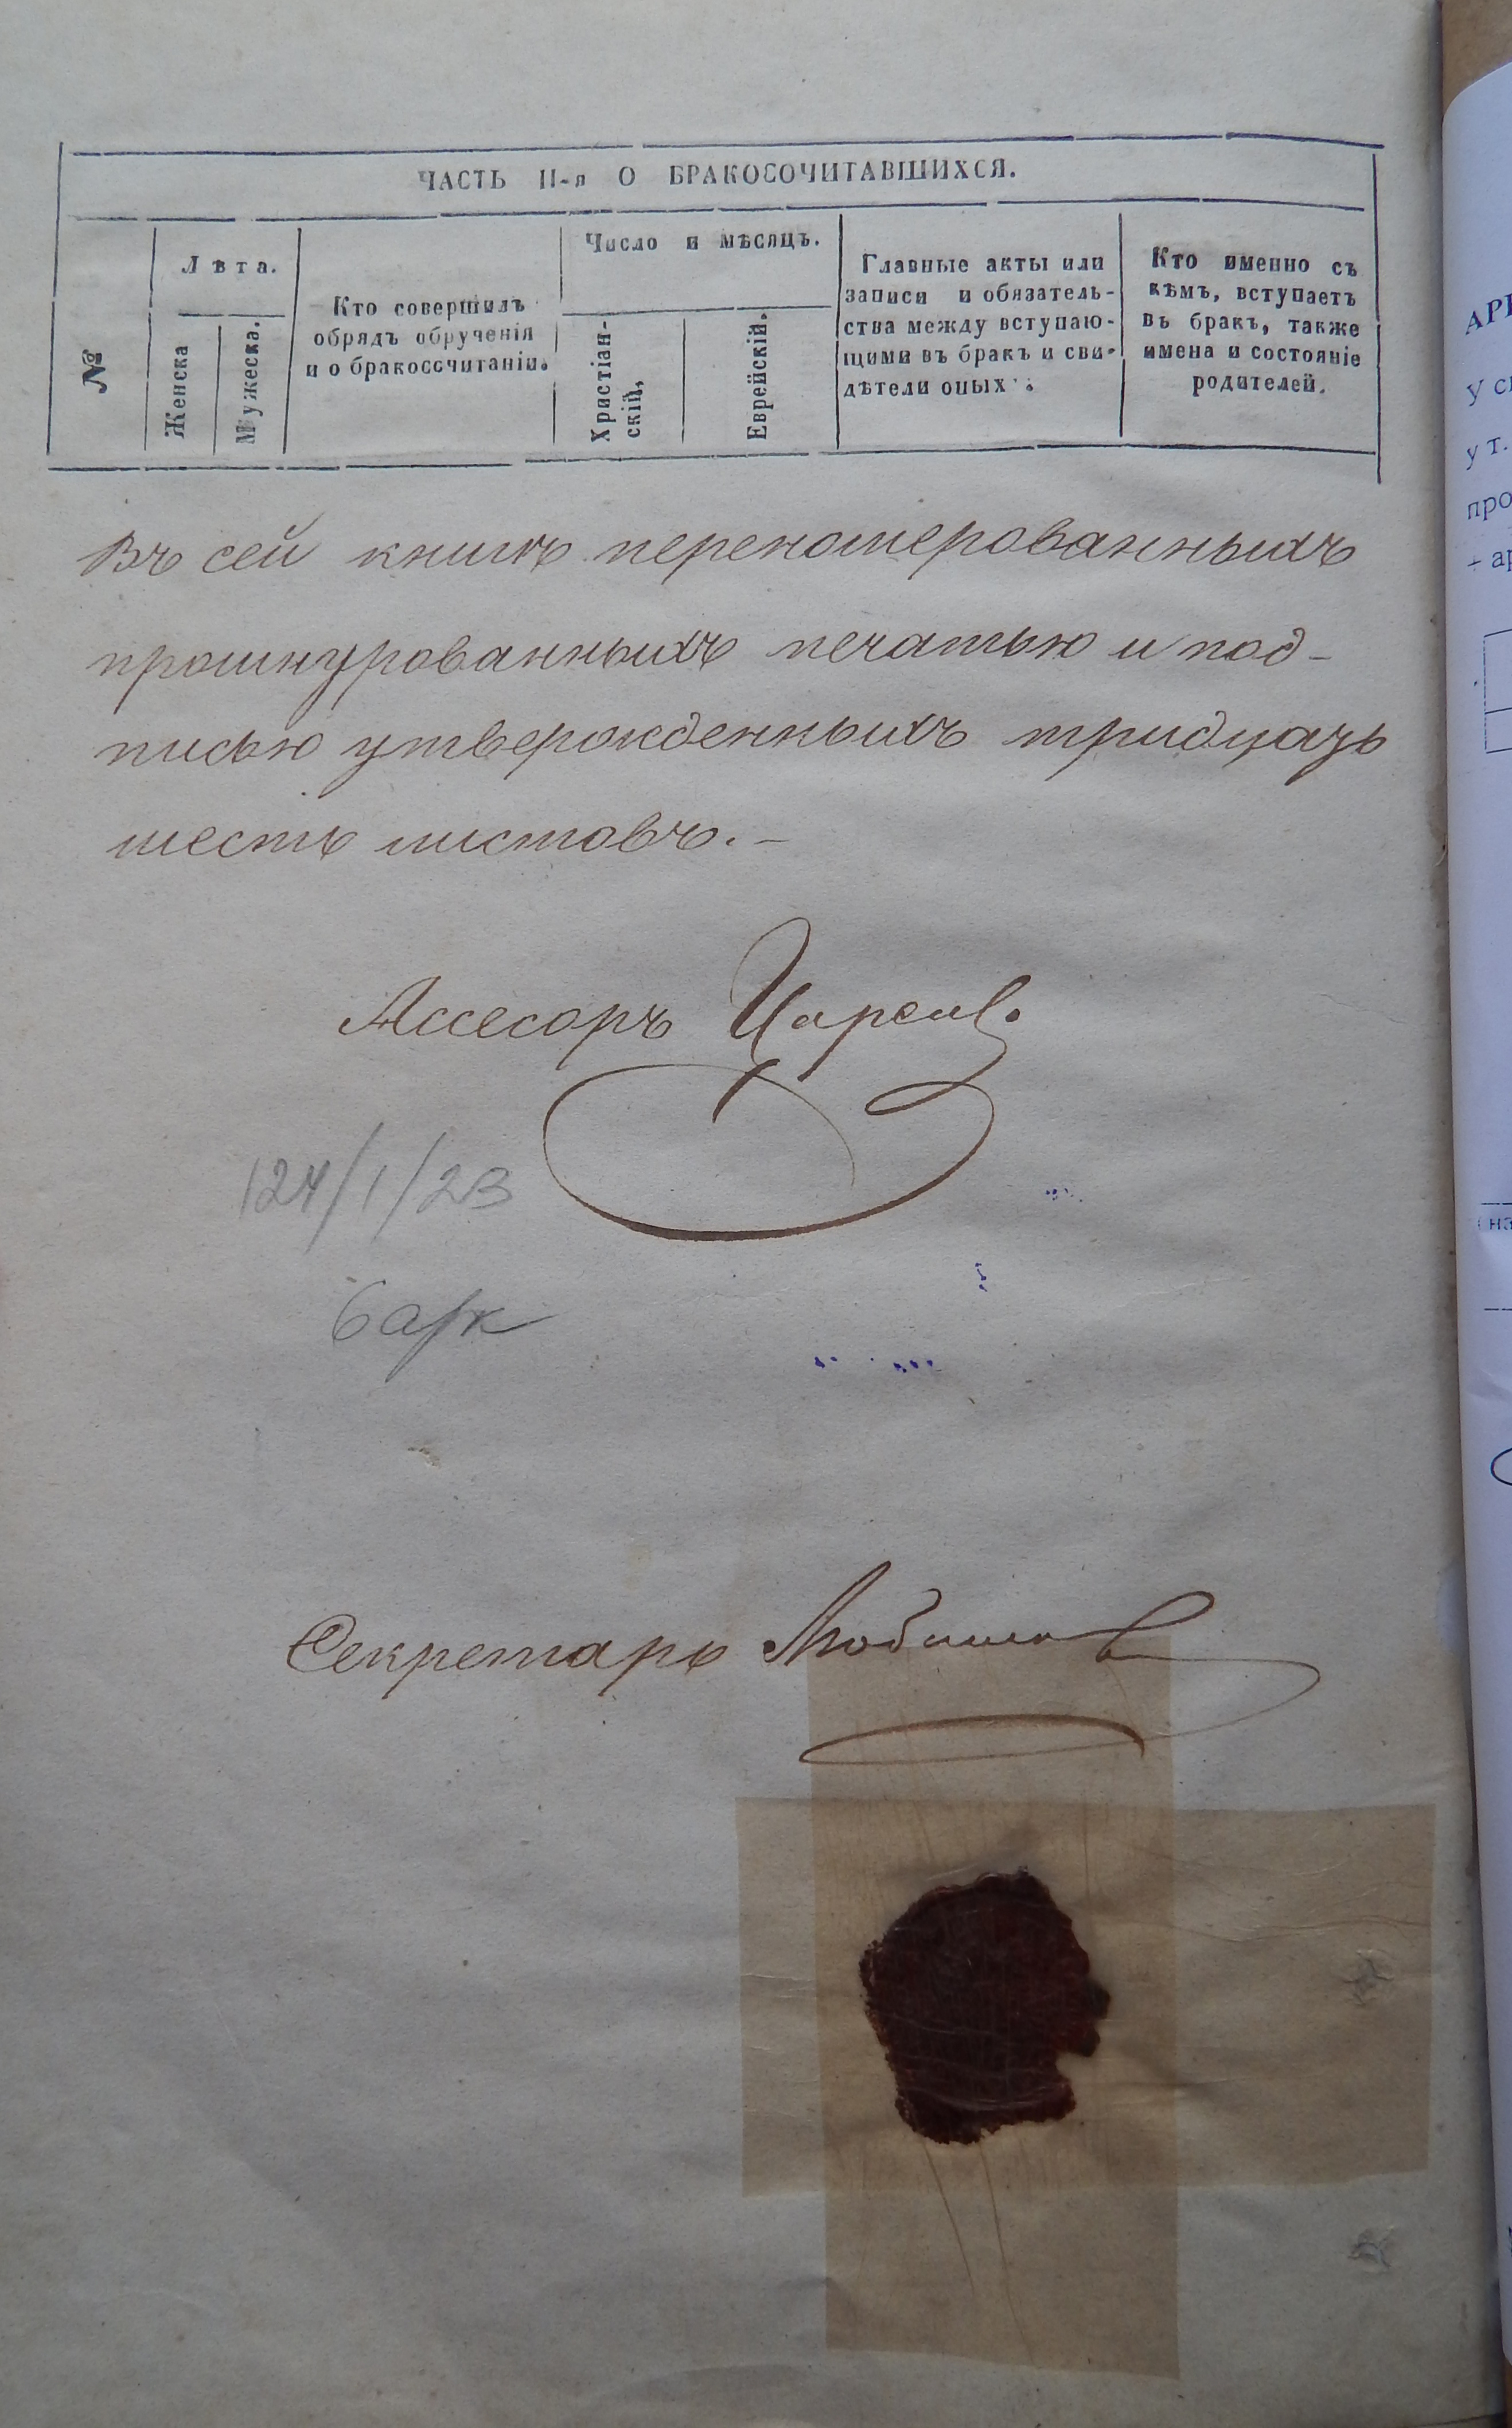 ЧАСТЬ II-я О БРАКОСОЧИТАВШИХСЯ.
№
Лѣта.
Женска
Мужеска.
Кто совершилъ
обрядъ обрученія
и о бракосочитаніи.
Число и мѣсяцъ.
Христіан-
скій,
Еврейскій.
Главные акты или
записи и обязатель-
ства между вступаю-
щими въ бракъ и сви-
дѣтели оныхъ.
Кто именно съ
кѣмъ, вступаетъ
въ бракъ, также
имена и состояніе
родителей.
Въ сей книгѣ переномерованныхъ
прошнурованныхъ печатью и под-
писью утвержденныхъ тридцать
шесть листовъ. –
Ассесоръ
124/1/23
6 арк
Секретарь